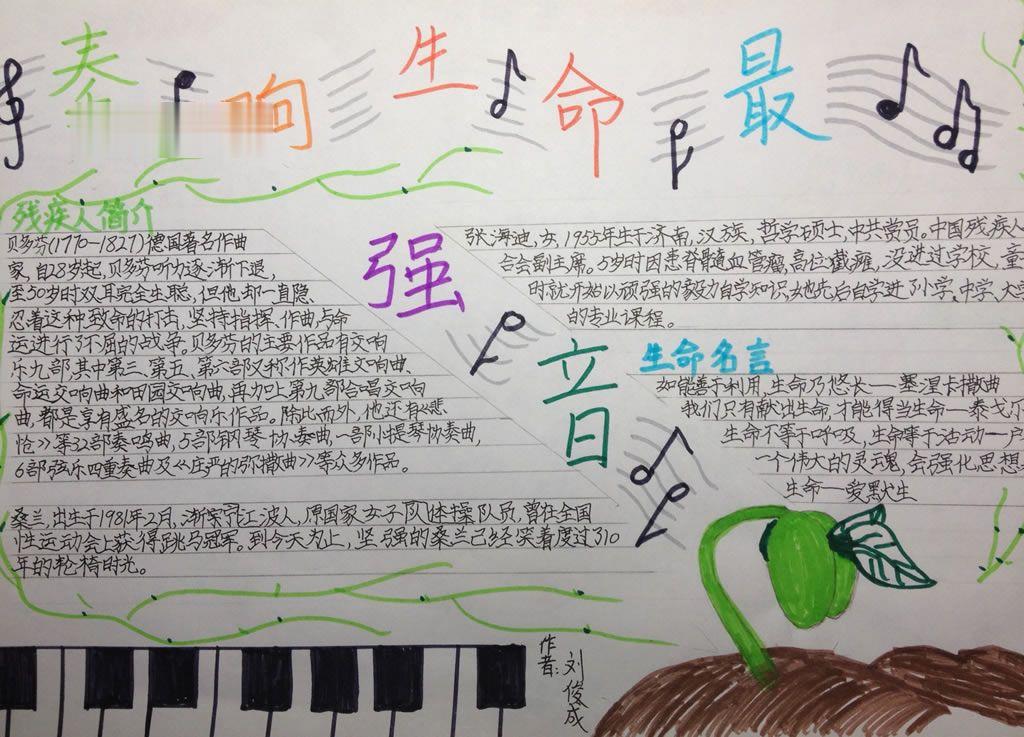 奏响生命最
强
音
残疾人简介
贝多芬(1770-1827)德国著名作曲
家,自28岁起,贝多芬听力逐渐下退,
至50岁时双耳完全生聪,但他却一直隐、
忍着这种致命的打击,坚持指挥、作曲,与命
运进行了不屈的战争。贝多芬的主要作品有交响
乐九部,其中第三、第五、第六部又称作英雄交响曲、
命运交响曲和田园交响曲,再加上第九部合唱交响
曲,都是享有盛名的交响乐作品。除此而外,他还有《悲
怆》等32部奏鸣曲,5部钢琴协奏曲,一部小提琴协奏曲,
6部弦乐四重奏曲及《庄严的弥撒曲》等众多作品。
桑兰,出生于1981年2月,浙江波人,原国家女子队体操队员,曾在全国
性运动会上获得跳马冠军。到今天为止,坚强的桑兰已经笑着度过了310
年的轮椅时光。
张海迪,女,1955年生于济南,汉族,哲学硕士,中共党员,中国残疾人
合会副主席。5岁时因患脊髓血管瘤,高位截瘫,没进过学校,童
时就开始以顽强的毅力自学知识,她先后自学进了小学、中学、大学
的专业课程。
生命名言
如能善于利用,生命乃悠长—塞涅卡撒曲
我们只有献出生命,才能得当生命—泰戈尔
生命不等于呼吸,生命等于活动—卢
一个伟大的灵魂,会强化思想
生命—爱默生
作者:刘俊成